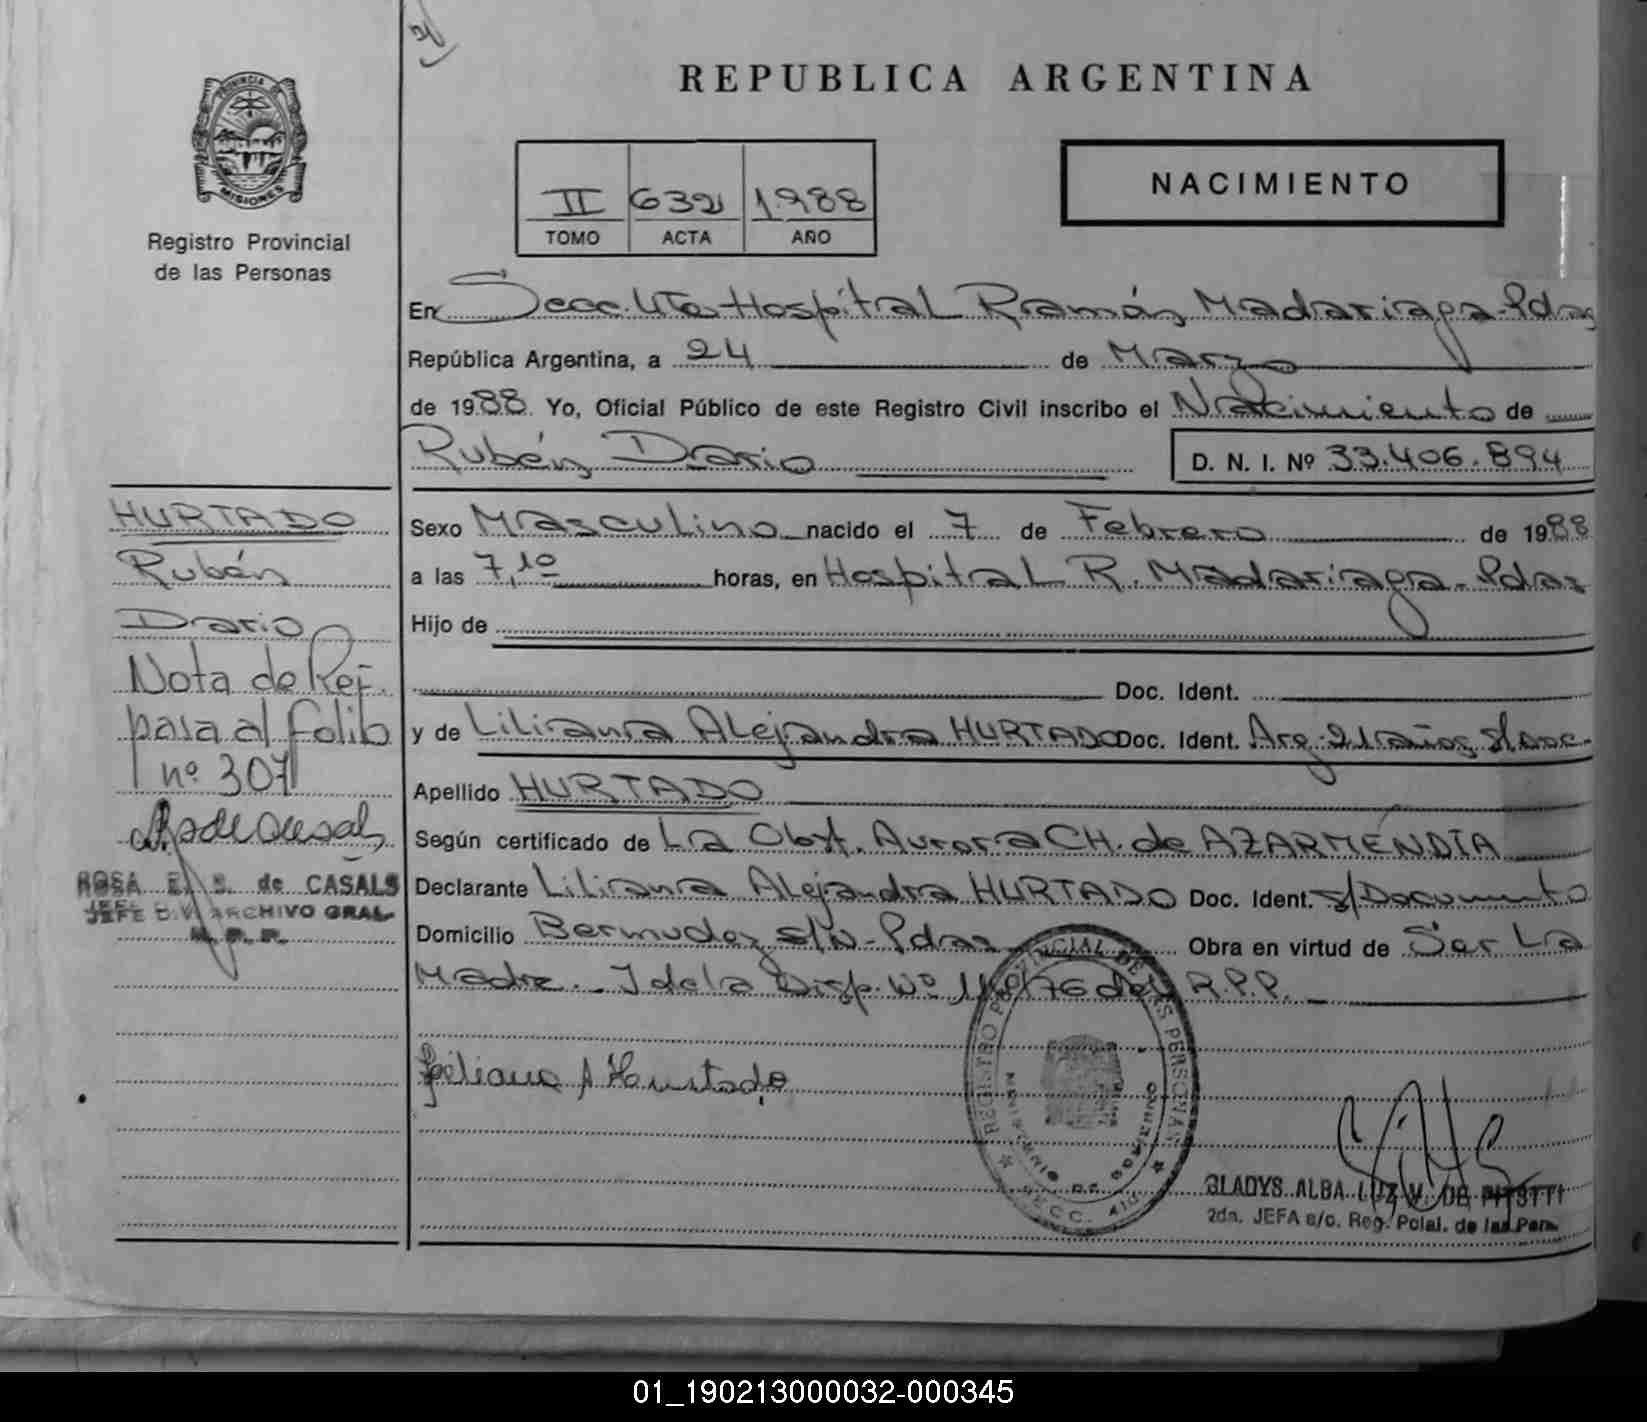 REPUBLICA ARGENTINA
PROVINCIA DE
MISIONES
Registro Provincial
de las Personas
II 632 1988
TOMO ACTA AÑO
NACIMIENTO
En Secc. 4ta Hospital Ramón Madariaga-Pdas
República Argentina, a 24 de Marzo
de 1988. Yo, Oficial Público de este Registro Civil inscribo el Nacimiento de
Rubén Dario D. N. I. Nº 33.406.894
Sexo Masculino nacido el 7 de Febrero de 1988
a las 7,10 horas, en Hospital R. Madariaga-Pdas
Hijo de
Doc. Ident.
y de Liliana Alejandra HURTADO Doc. Ident. Arg. 21 años s/doc.
Apellido HURTADO
Según certificado de La Obst. Aurora CH. de AZARMENDIA
Declarante Liliana Alejandra HURTADO Doc. Ident. s/Documento
Domicilio Bermudez s/N-Pdas Obra en virtud de Ser La
Madre. - I de la Disp. Nº /76 del R.P.P.
Liliana A Hurtado
HURTADO
Rubén
Dario
Nota de Ref.
pasa al folio
nº 307
ROSA E. S. de CASALS
JEFE DIV. ARCHIVO GRAL.
R. P. P.
REGISTRO PROVINCIAL DE LAS PERSONAS
SECC. 4ta
GLADYS ALBA LUZ V. DE
2da. JEFA a/c. Reg. Pcial. de las Pers.
01_190213000032-000345